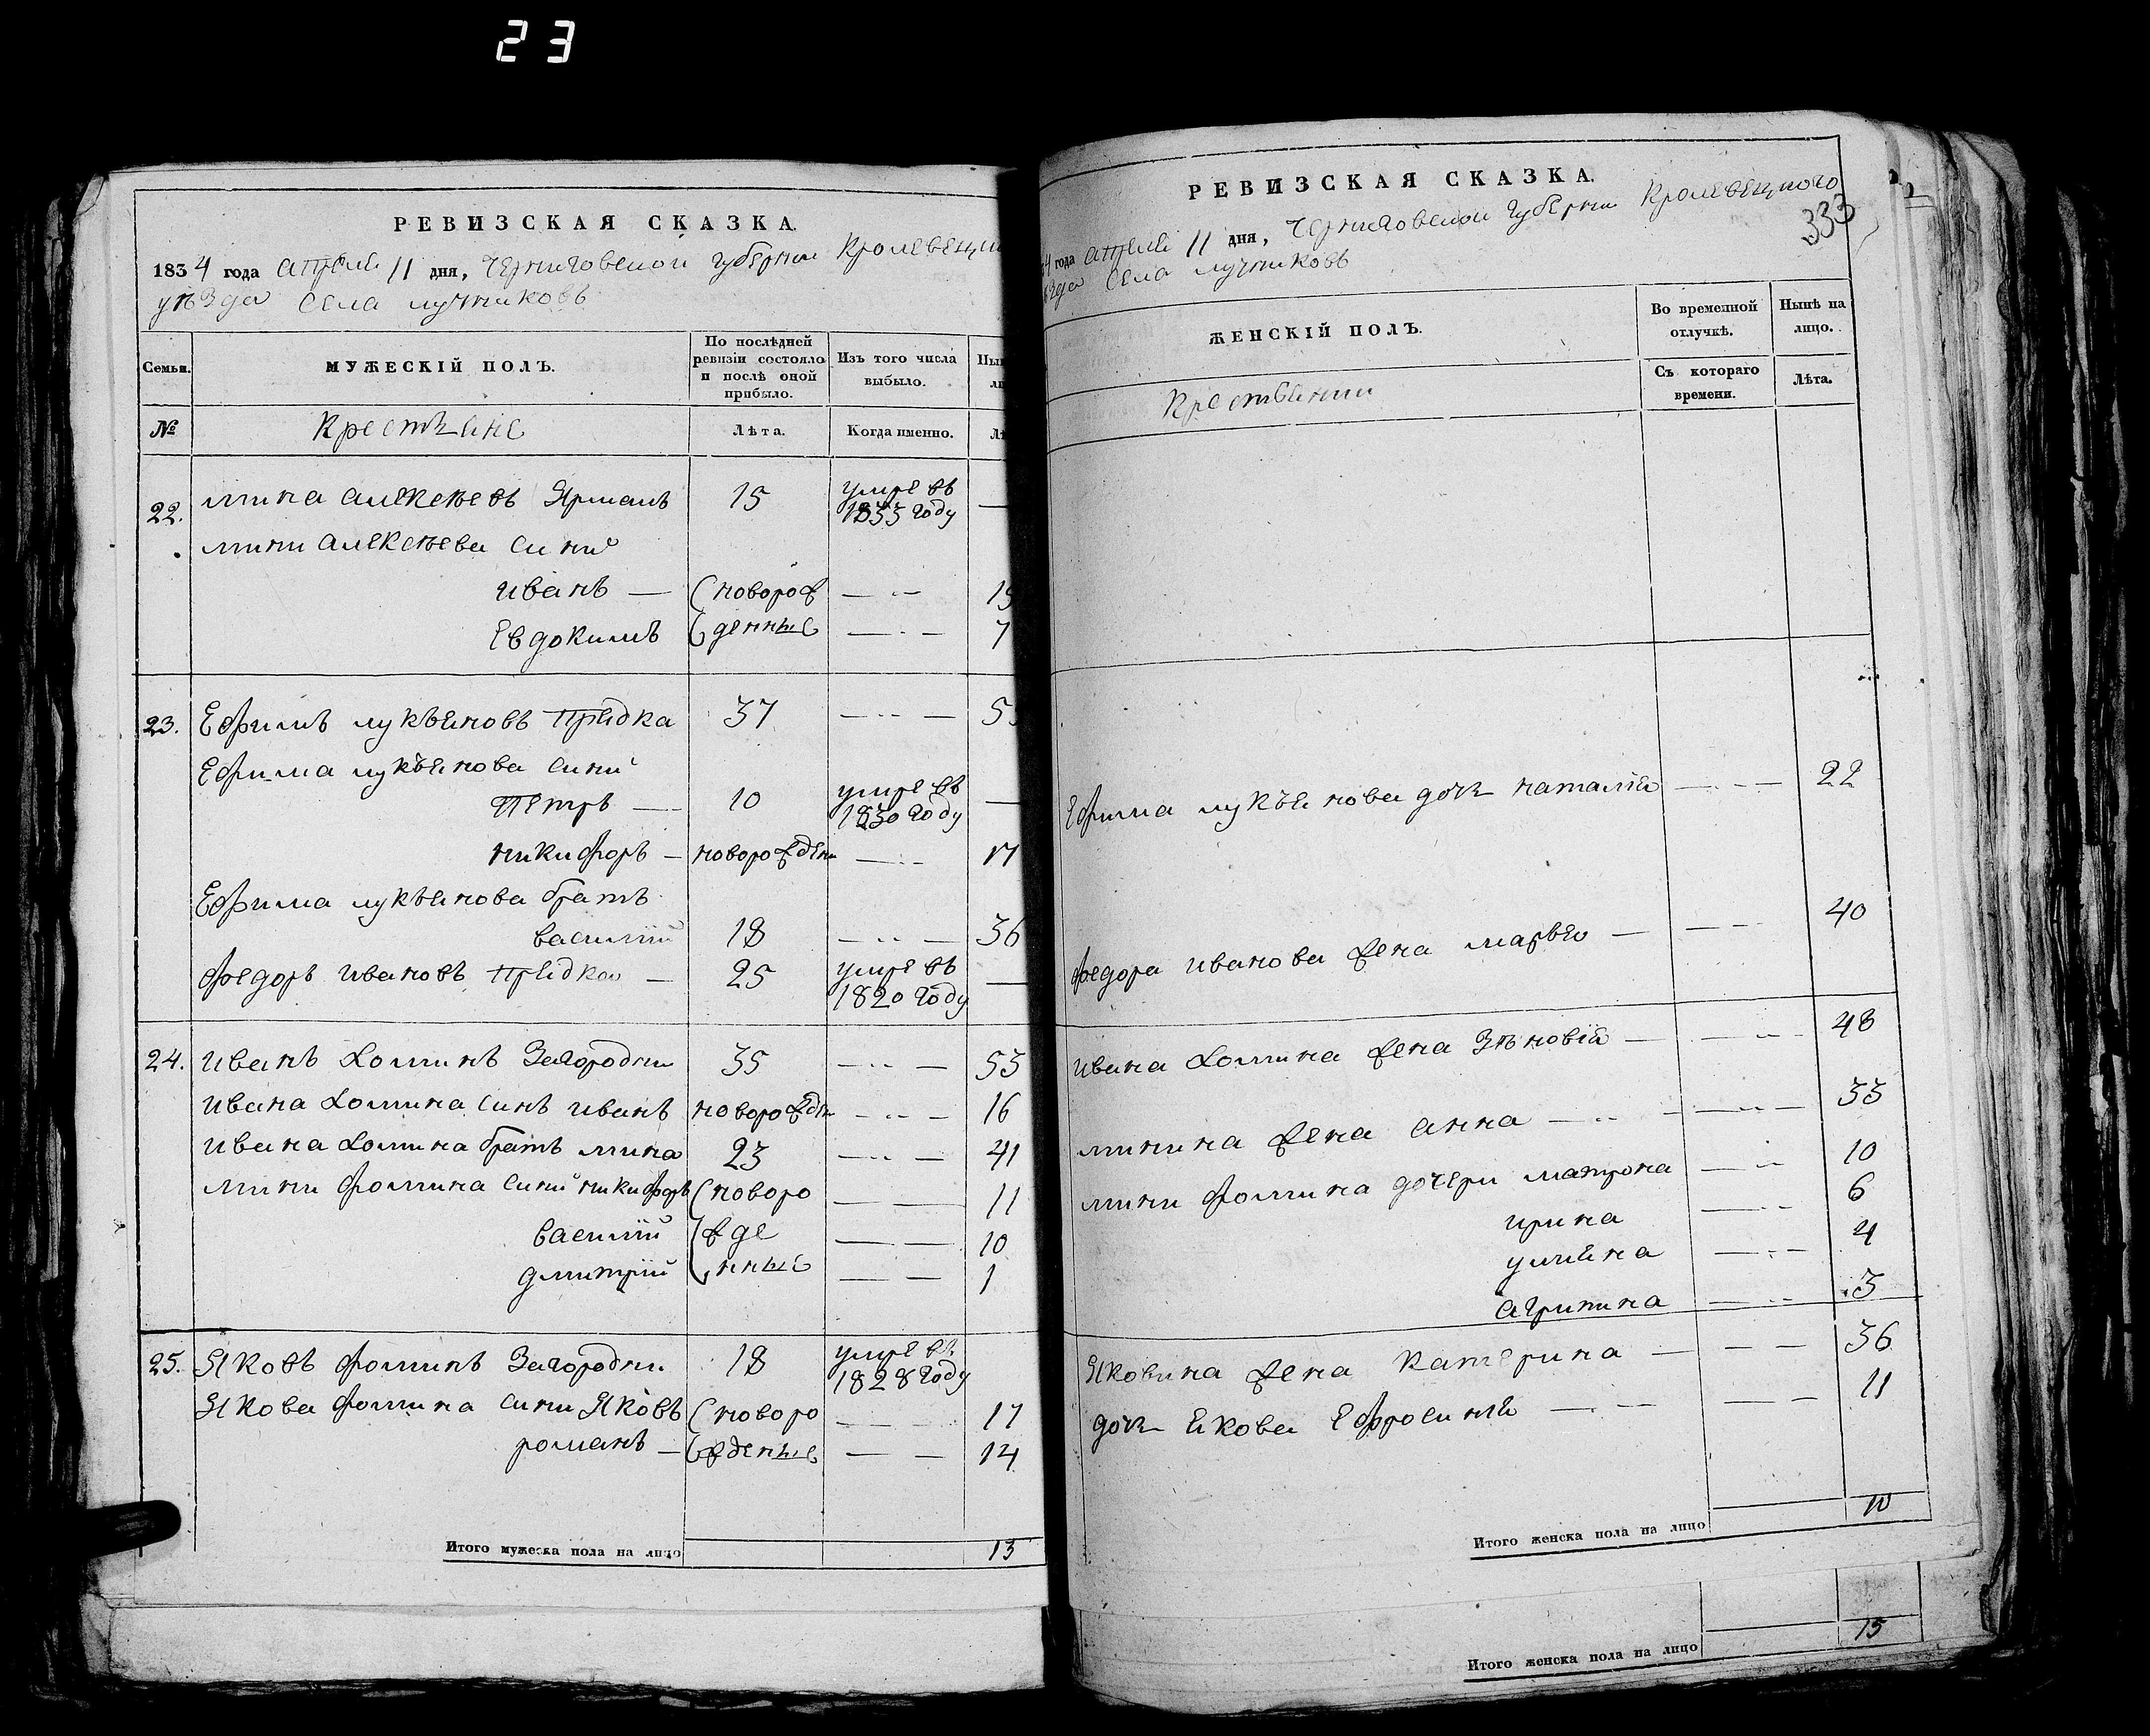 23
РЕВИЗСКАЯ СКАЗКА.
1834 года апреля 11 дня, Черниговской губернии Кролевецк
уѣзда села лучниковъ
Семьи.
МУЖЕСКІЙ ПОЛЪ.
По послѣдней ревизіи состояло и послѣ оной прибыло.
Изъ того числа выбыло.
№
Лѣта.
Когда именно.
22. мина алексѣевъ 15 умре въ 1833 году —
мини алексѣева сини
иванъ — (новорож — 19
Евдокимъ (денные — 7
23. Ефимъ лукъяновъ 37 — 5
Ефима лукъянова сини
Петръ — 10 умре въ 1830 году —
никифоръ — новорожден — 17
Ефима лукъянова братъ
василій 18 — 36
федоръ ивановъ — 25 умре въ 1820 году —
24. иванъ Хоминъ Загородни 35 — 53
ивана Хомина синъ иванъ новорожден — 16
ивана Хомина братъ мина 23 — 41
мини фомина сини никифоръ (новоро — 11
василій (жде — 10
дмитрій (нные — 1
25. Яковъ фоминъ Загородни 18 умре въ 1828 году
Якова фомина сини Яковъ (новоро — 17
романъ — (жденные — 14
Итого мужеска пола на лицо 13
РЕВИЗСКАЯ СКАЗКА.
4 года апреля 11 дня, Черниговской губернии Кролевецкого
ѣзда села лучниковъ
333
ЖЕНСКІЙ ПОЛЪ.
Во временной отлучкѣ.
Нынѣ на лицо.
Съ котораго времени.
Лѣта.
Ефима лукъянова дочь наталія — 22
федора иванова жена марья — 40
ивана Хомина жена Зѣновія — 48
минина жена анна — 33
мини фомина дочери матрона — 10
ирина — 6
уляна — 4
агрипина — 3
Яковина жена Катерина — 36
дочь Якова Ефросинія — 11
Итого женска пола на лицо 10
Итого женска пола на лицо 15